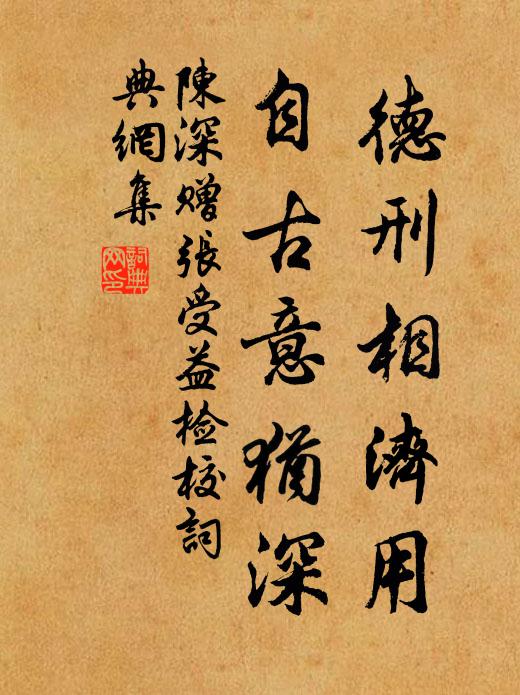 德刑相濟用
自古意猶深
陳深贈張受益檢校詞
典網集
詞典
网印